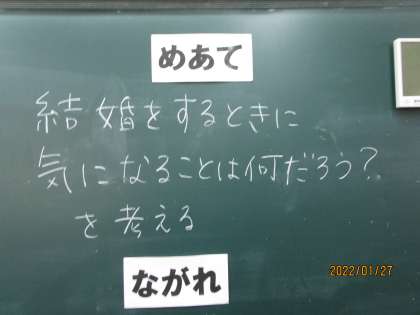 めあて
結婚をするときに
気になることは何だろう?
を考える
ながれ
2022/01/27